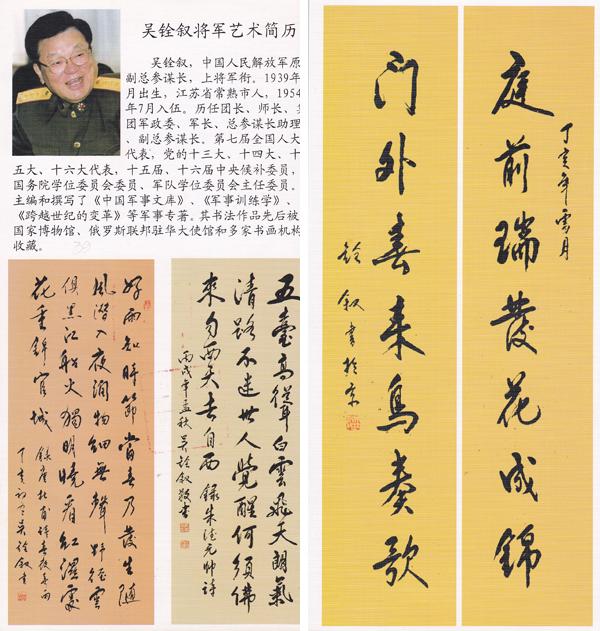 吴铨叙将军艺术简历
吴铨叙，中国人民解放军原
副总参谋长，上将军衔。1939年
月出生，江苏省常熟市人，1954
年7月入伍。历任团长、师长、
团军政委、军长、总参谋长助理
、副总参谋长。第七届全国人大
代表，党的十三大、十四大、十
五大、十六大代表，十五届、十六届中央候补委员，
国务院学位委员会委员、军队学位委员会主任委员。
主编和撰写了《中国军事文库》、《军事训练学》、
《跨越世纪的变革》等军事专著。其书法作品先后被
国家博物馆、俄罗斯联邦驻华大使馆和多家书画机构
收藏。
39
好雨知時節當春乃發生隨
風潛入夜潤物細無聲野徑雲
俱黑江船火獨明曉看紅濕處
花重錦官城
錄唐杜甫詩春夜喜雨
丁亥初冬吴铨叙書
五臺高聳白雲飛天朗氣
清路不迷世人覺醒何須佛
來勿西天去自西 錄朱德元帥詩
丙戌年孟秋吴铨叙敬書
丁亥年雪月
庭前瑞發花成錦
门外春来鸟奏歌
铨叙書於京